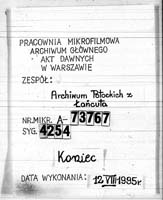 PRACOWNIA MIKROFILMOWA
ARCHIWUM GŁÓWNEGO
AKT DAWNYCH
W WARSZAWIE
ZESPÓŁ:
Archiwum Potockich z
Łańcuta
NR.MIKR. A-73767
SYG. 4254
Koniec
DATA WYKONANIA: 12 VIII 1995r